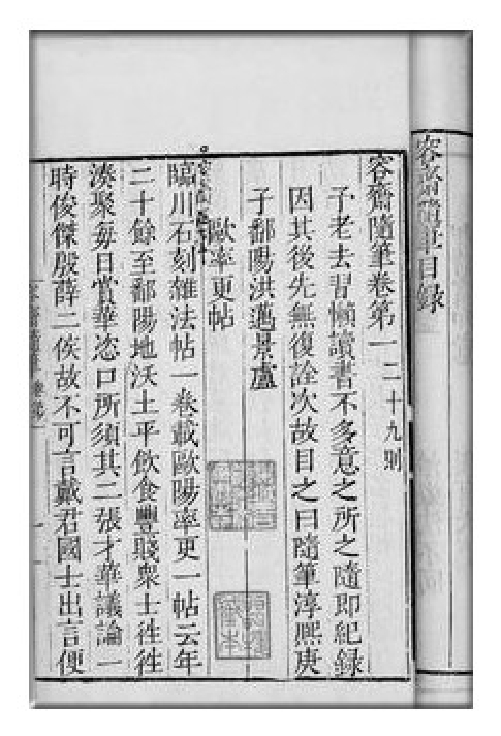 容齋隨筆目錄
容齋隨筆卷第一二十九則
予老去習懶讀書不多意之所之隨即紀錄
因其後先無復詮次故目之曰隨筆淳熙庚
子鄱陽洪邁景盧
歐率更帖
臨川石刻雜法帖一卷載歐陽率更一帖云年
二十餘至鄱陽地沃土平飲食豐賤衆士往往
湊聚每日賞華恣口所須其二張才華議論一
時俊傑殷薛二侯故不可言戴君國士出言便